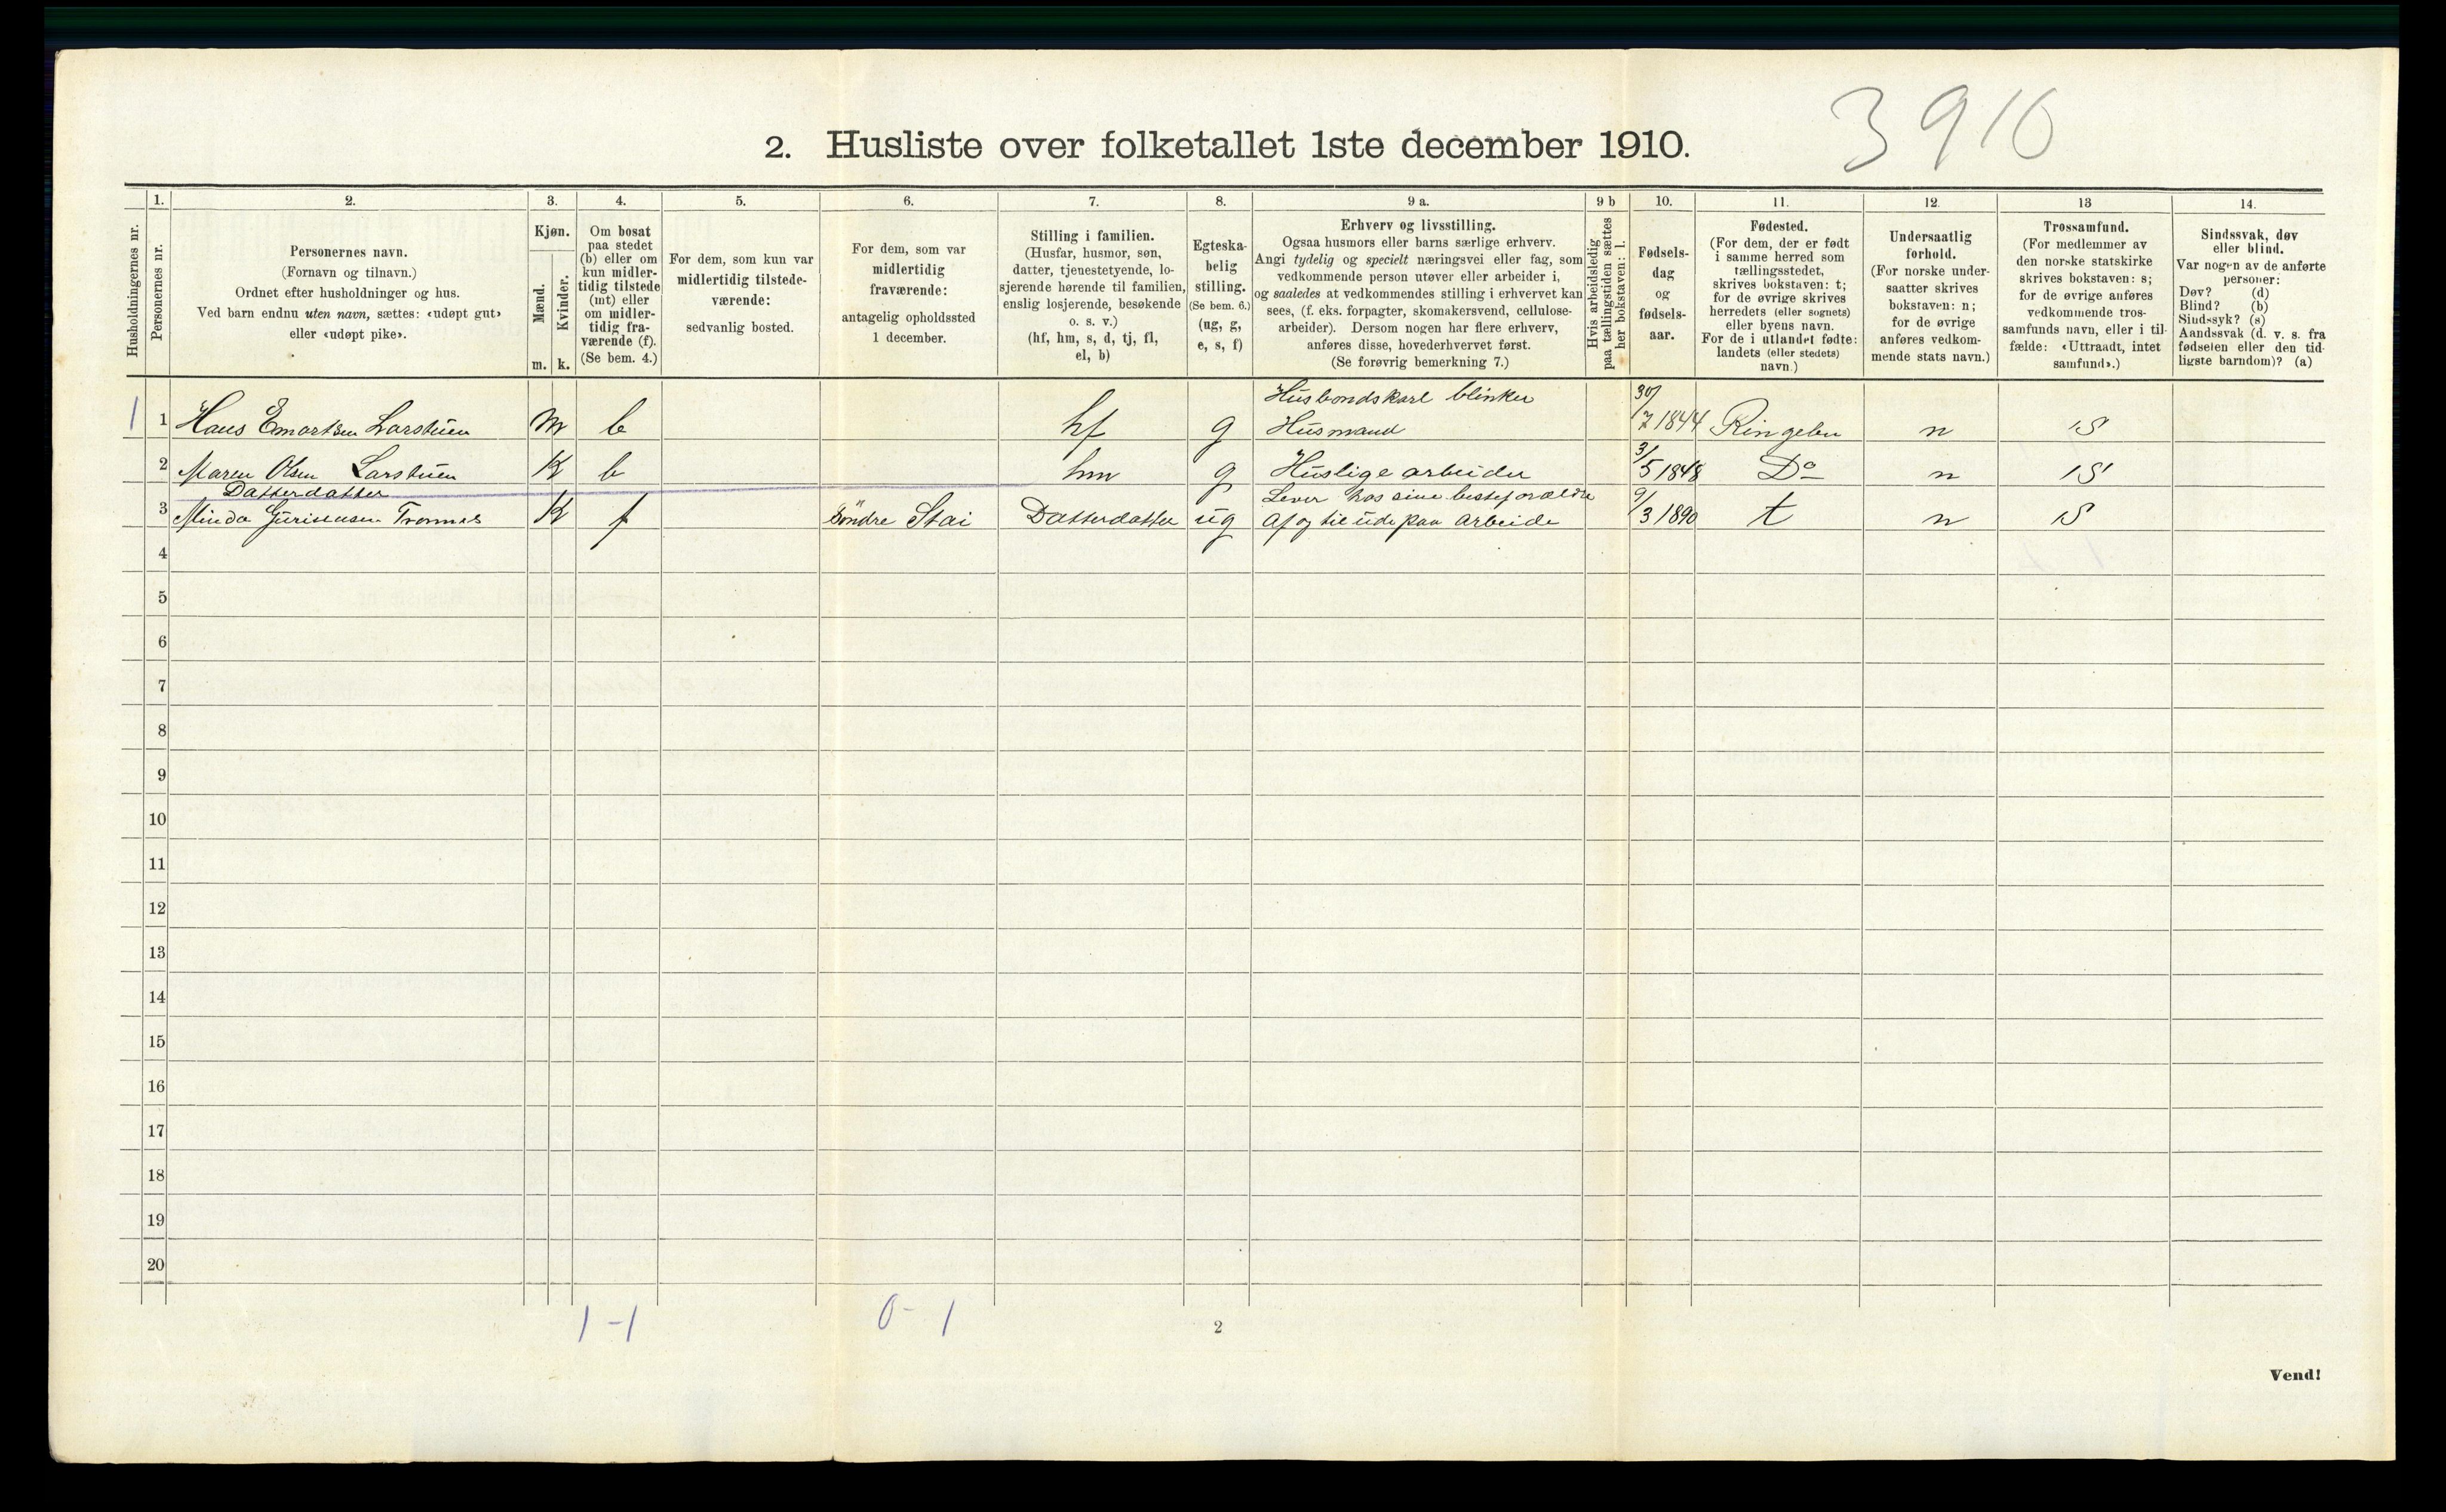 3910
2. Husliste over folketallet 1ste december 1910.
1. 2. 3. 4. 5. 6. 7. 8. 9 a. 9 b 10. 11. 12. 13 14.
Husholdningernes nr.
Personernes nr.
Personernes navn.
(Fornavn og tilnavn.)
Ordnet efter husholdninger og hus.
Ved barn endnu uten navn, sættes: «udøpt gut»
eller «udøpt pike».
Kjøn.
Mænd.
Kvinder.
m. k.
Om bosat
paa stedet
(b) eller om
kun midler-
tidig tilstede
(mt) eller
om midler-
tidig fra-
værende (f).
(Se bem. 4.)
For dem, som kun var
midlertidig tilstede-
værende:
sedvanlig bosted.
For dem, som var
midlertidig
fraværende:
antagelig opholdssted
1 december.
Stilling i familien.
(Husfar, husmor, søn,
datter, tjenestetyende, lo-
sjerende hørende til familien,
enslig losjerende, besøkende
o. s. v.)
(hf, hm, s, d, tj, fl,
el, b)
Egteska-
belig
stilling.
(Se bem. 6.)
(ug, g,
e, s, f)
Erhverv og livsstilling.
Ogsaa husmors eller barns særlige erhverv.
Angi tydelig og specielt næringsvei eller fag, som
vedkommende person utøver eller arbeider i,
og saaledes at vedkommendes stilling i erhvervet kan
sees, (f. eks. forpagter, skomakersvend, cellulose-
arbeider). Dersom nogen har flere erhverv,
anføres disse, hovederhvervet først.
(Se forøvrig bemerkning 7.)
Hvis arbeidsledig
paa tællingstiden sættes
her bokstaven: l.
Fødsels-
dag
og
fødsels-
aar.
Fødested.
(For dem, der er født
i samme herred som
tællingsstedet,
skrives bokstaven: t;
for de øvrige skrives
herredets (eller sognets)
eller byens navn.
For de i utlandet fødte:
landets (eller stedets)
navn.)
Undersaatlig
forhold.
(For norske under-
saatter skrives
bokstaven: n;
for de øvrige
anføres vedkom-
mende stats navn.)
Trossamfund.
(For medlemmer av
den norske statskirke
skrives bokstaven: s;
for de øvrige anføres
vedkommende tros-
samfunds navn, eller i til-
fælde: «Uttraadt, intet
samfund».)
Sindssvak, døv
eller blind.
Var nogen av de anførte
personer:
Døv? (d)
Blind? (b)
Sindssyk? (s)
Aandssvak (d. v. s. fra
fødselen eller den tid-
ligste barndom)? (a)
Husbondskarl blinker
1 1 Hans Emortsen Larstuen m b hf g Husmand 30/7 1844 Ringebu n S
2 Maren Olsen Larstuen K b hm g Huslige arbeider 3/5 1848 Do n S
Datterdatter Lever hos sine besteforældre
3 Minda Tromnes K f Söndre Stai Datterdatter ug af og til ude paa arbeide 9/3 1890 t n S
4
5
6
7
8
9
10
11
12
13
14
15
16
17
18
19
20
1-1 0-1
2
Vend!